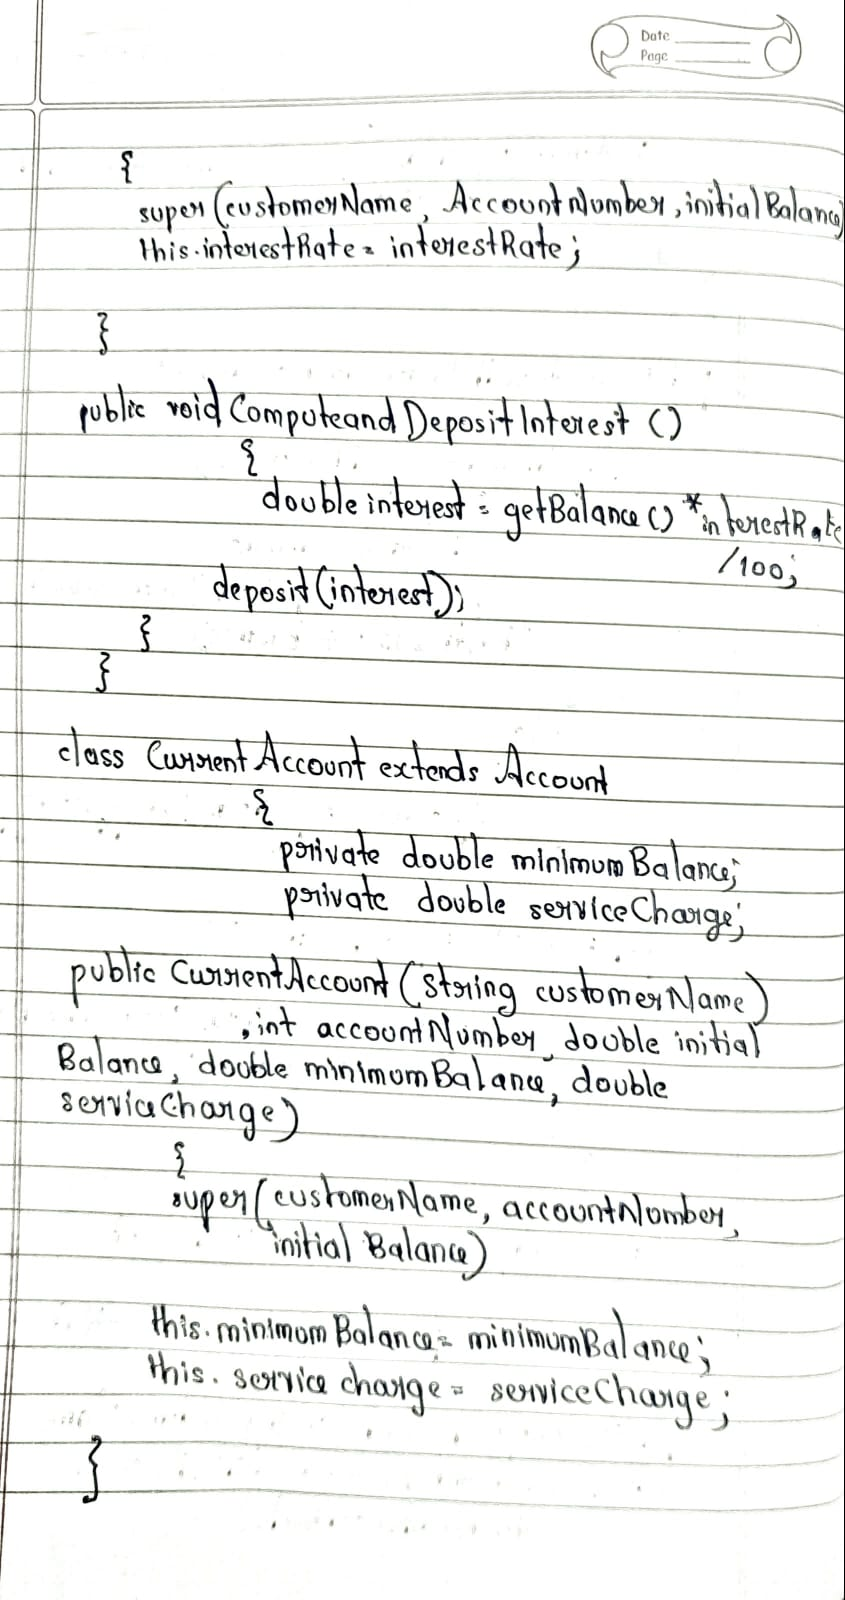 Date
Page
{
super (customerName, AccountNumber, initialBalance)
this.interestRate = interestRate;
}
public void ComputeandDepositInterest ()
{
double interest = getBalance () * interestRate
/100;
deposit (interest);
}
}
class CurrentAccount extends Account
{
private double minimumBalance;
private double serviceCharge;
public CurrentAccount (String customerName)
, int accountNumber, double initial
Balance, double minimumBalance, double
serviceCharge)
{
super (customerName, accountNumber,
initial Balance)
this.minimumBalance = minimumBalance;
this. service charge = serviceCharge;
}